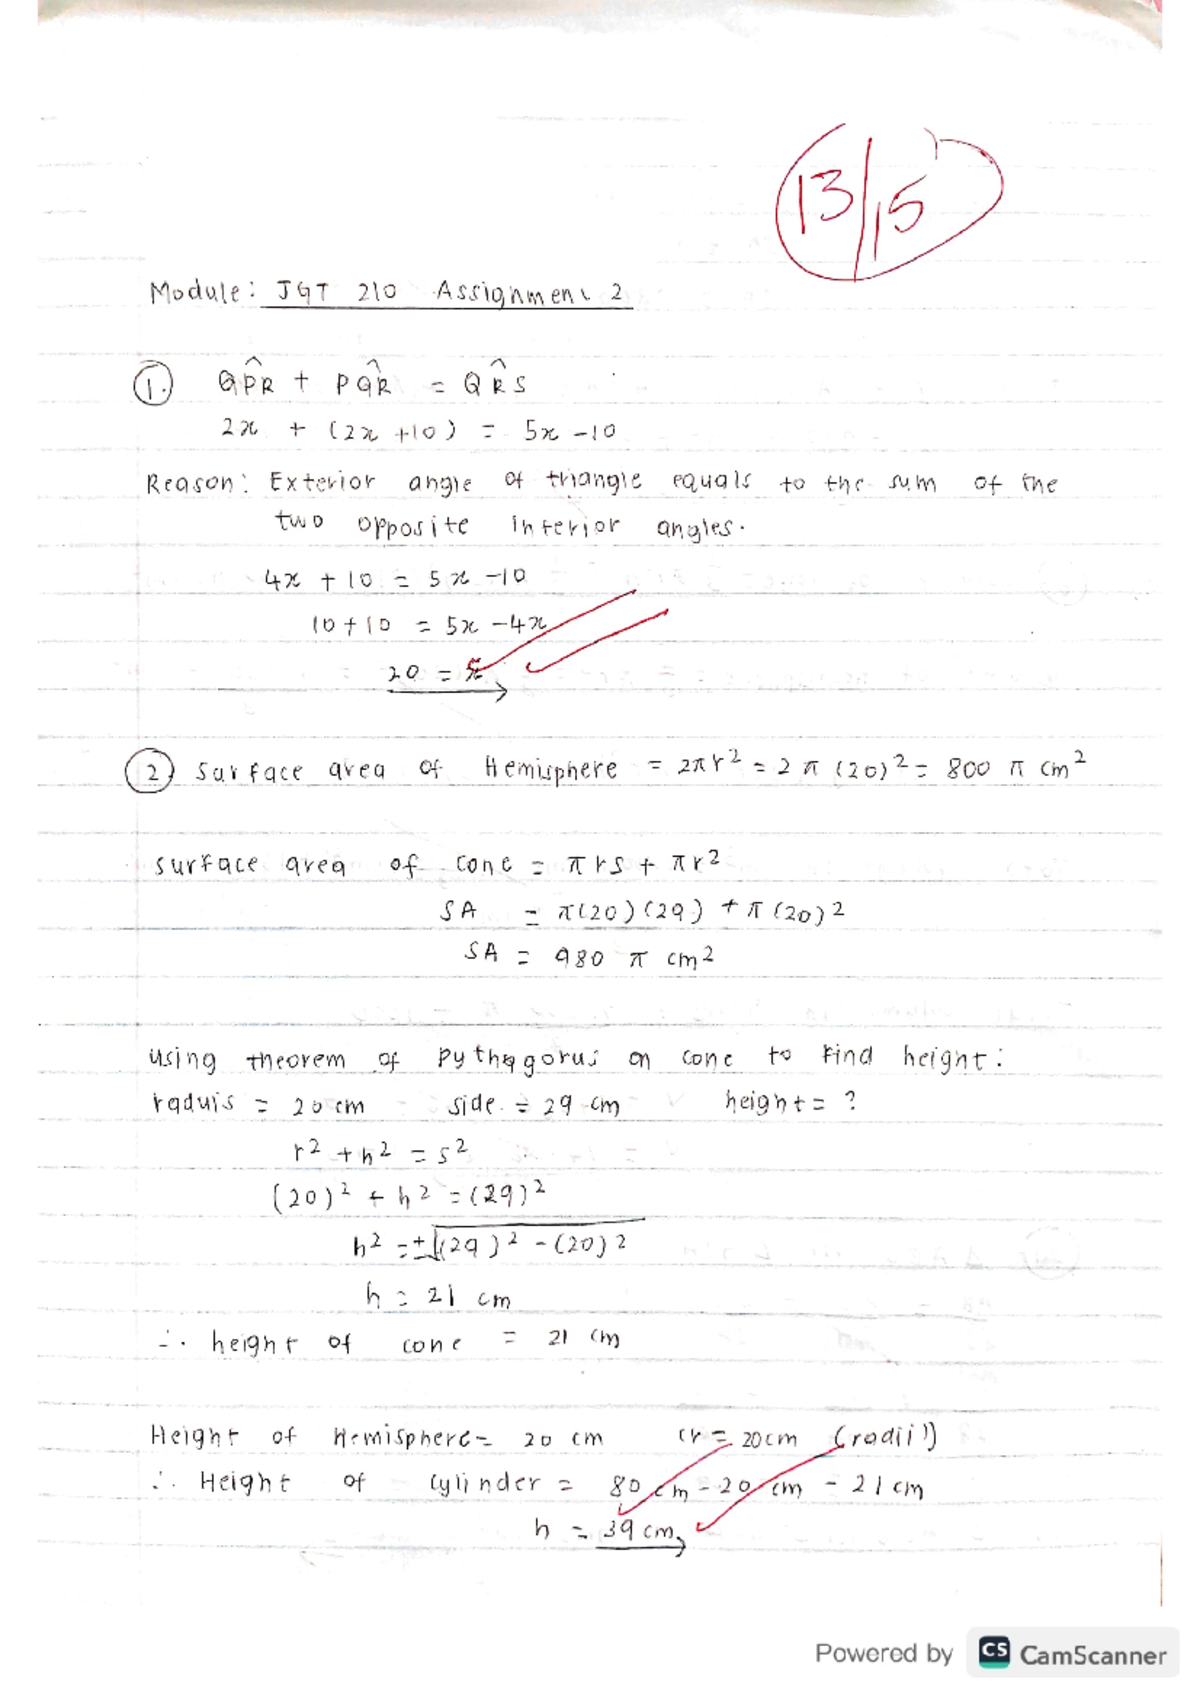 13/15
Module: JGT 210 Assignment 2
1. QP̂R + PQ̂R = QR̂S
2x + (2x +10) = 5x -10
Reason: Exterior angle of triangle equals to the sum of the
two opposite interior angles.
4x + 10 = 5x -10
10 + 10 = 5x -4x
20 = x
2 Surface area of Hemisphere = 2πr² = 2π(20)² = 800 π cm²
surface area of cone = πrs + πr²
SA = π(20)(29) + π(20)²
SA = 980 π cm²
using theorem of Pythagorus on cone to find height:
raduis = 20 cm side = 29 cm height = ?
r² + h² = s²
(20)² + h² = (29)²
h² = ±√(29)² - (20)²
h = 21 cm
∴ height of cone = 21 cm
Height of Hemisphere = 20 cm (r = 20cm (radii))
∴ Height of cylinder = 80 cm - 20 cm - 21 cm
h = 39 cm
Powered by CS CamScanner